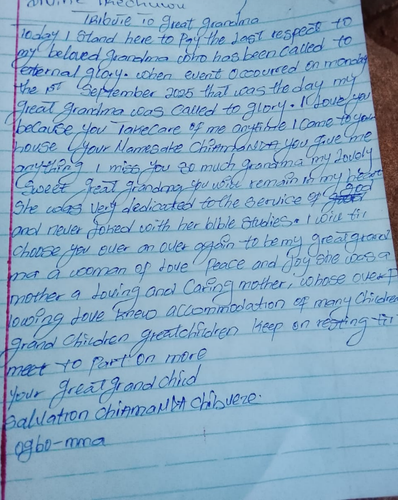 Divine Ikechukwu
Tribute to great grandma
Today I stand here to pay the last respect to
my beloved grandma who has been called to
external glory. when event occoured on monday
the 1st September 2025 that was the day my
great grandma was called to glory. I love you
because you Takecare of me anytime I come to your
house. Your Namesake ChiAMANDA you give me
anything I miss you so much grandma my lovely
Sweet great grandma you will remain in my heart
She was very dedicated to the service of God
and never Joked with her bible studies. I will
choose you over an over again to be my great grand
ma a woman of love peace and Joy she was a
mother a loving and caring mother, whose over
lowing love knew accommodation of many children
grand children greatchildren keep on resting till
meet to part on more
your great grand child
Salvation ChiAMANDA Chibueze.
ogbo-mma